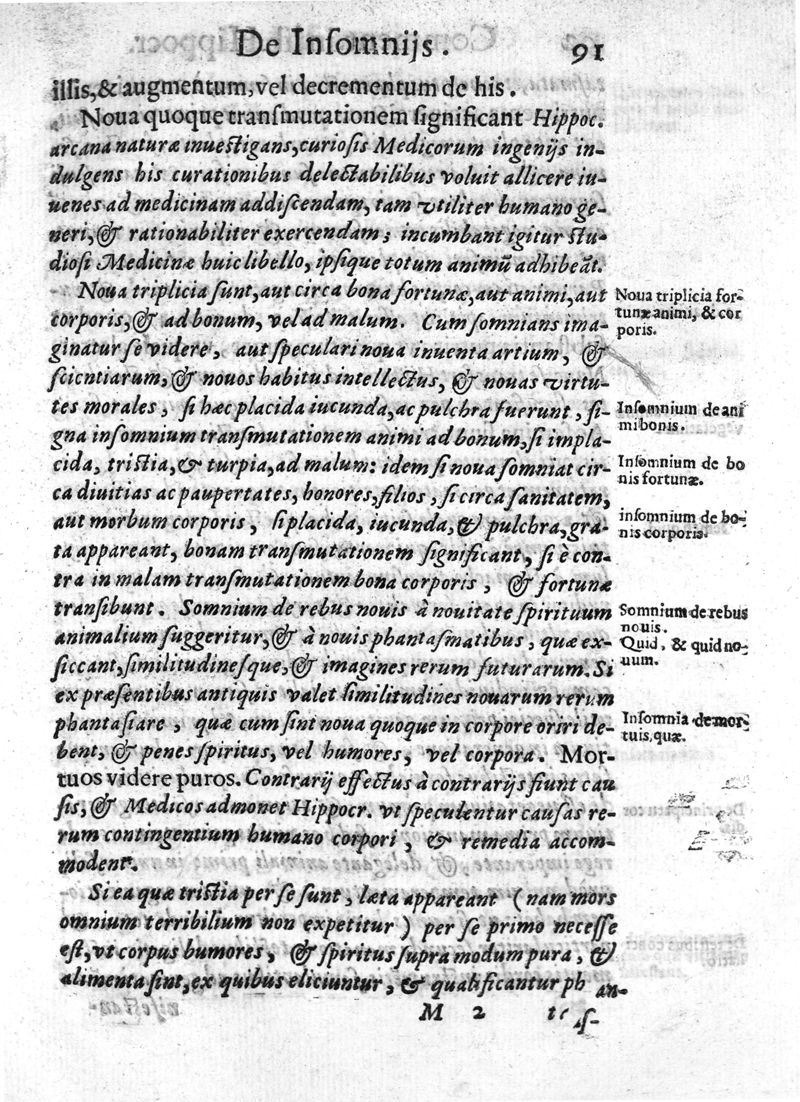 De Inſomnijs. 91
illis, & augmentum, vel decrementum de his.
Noua quoque tranſmutationem ſignificant Hippoc.
arcana naturæ inueſtigans, curioſis Medicorum ingenijs in-
dulgens his curationibus delectabilibus voluit allicere iu-
uenes ad medicinam addiſcendam, tam vtiliter humano ge-
neri, & rationabiliter exercendam; incumbant igitur ſtu-
dioſi Medicinæ huic libello, ipſique totum animũ adhibeãt.
Noua triplicia ſunt, aut circa bona fortunæ, aut animi, aut
corporis, & ad bonum, vel ad malum. Cum ſomnians ima-
ginatur ſe videre, aut ſpeculari noua inuenta artium, &
ſcientiarum, & nouos habitus intellectus, & nouas virtu-
tes morales, ſi hæc placida iucunda, ac pulchra fuerunt, ſi-
gna inſomnium tranſmutationem animi ad bonum, ſi impla-
cida, triſtia, & turpia, ad malum: idem ſi noua ſomniat cir-
ca diuitias ac paupertates, honores, filios, ſi circa ſanitatem,
aut morbum corporis, ſi placida, iucunda, & pulchra, gra-
ta appareant, bonam tranſmutationem ſignificant, ſi è con-
tra in malam tranſmutationem bona corporis, & fortunæ
tranſibunt. Somnium de rebus nouis à nouitate ſpirituum
animalium ſuggeritur, & à nouis phantaſmatibus, quæ ex-
ſiccant, ſimilitudineſque, & imagines rerum futurarum. Si
ex præſentibus antiquis valet ſimilitudines nouarum rerum
phantaſiare, quæ cum ſint noua quoque in corpore oriri de-
bent, & penes ſpiritus, vel humores, vel corpora. Mor-
tuos videre puros. Contrarij effectus à contrarijs fiunt cau
ſis, & Medicos admonet Hippocr. vt ſpeculentur cauſas re-
rum contingentium humano corpori, & remedia accom-
modent.
Si ea quæ triſtia per ſe ſunt, læta appareant (nam mors
omnium terribilium non expetitur) per ſe primo neceſſe
eſt, vt corpus humores, & ſpiritus ſupra modum pura, &
alimenta ſint, ex quibus eliciuntur, & qualificantur phan-
M 2 taſ-
Noua triplicia for-
tunæ animi, & cor
poris.
Inſomnium de ani
mi bonis.
Inſomnium de bo
nis fortunæ.
inſomnium de bo-
nis corporis.
Somnium de rebus
nouis.
Quid, & quid no-
uum.
Inſomnia de mor-
tuis, quæ.